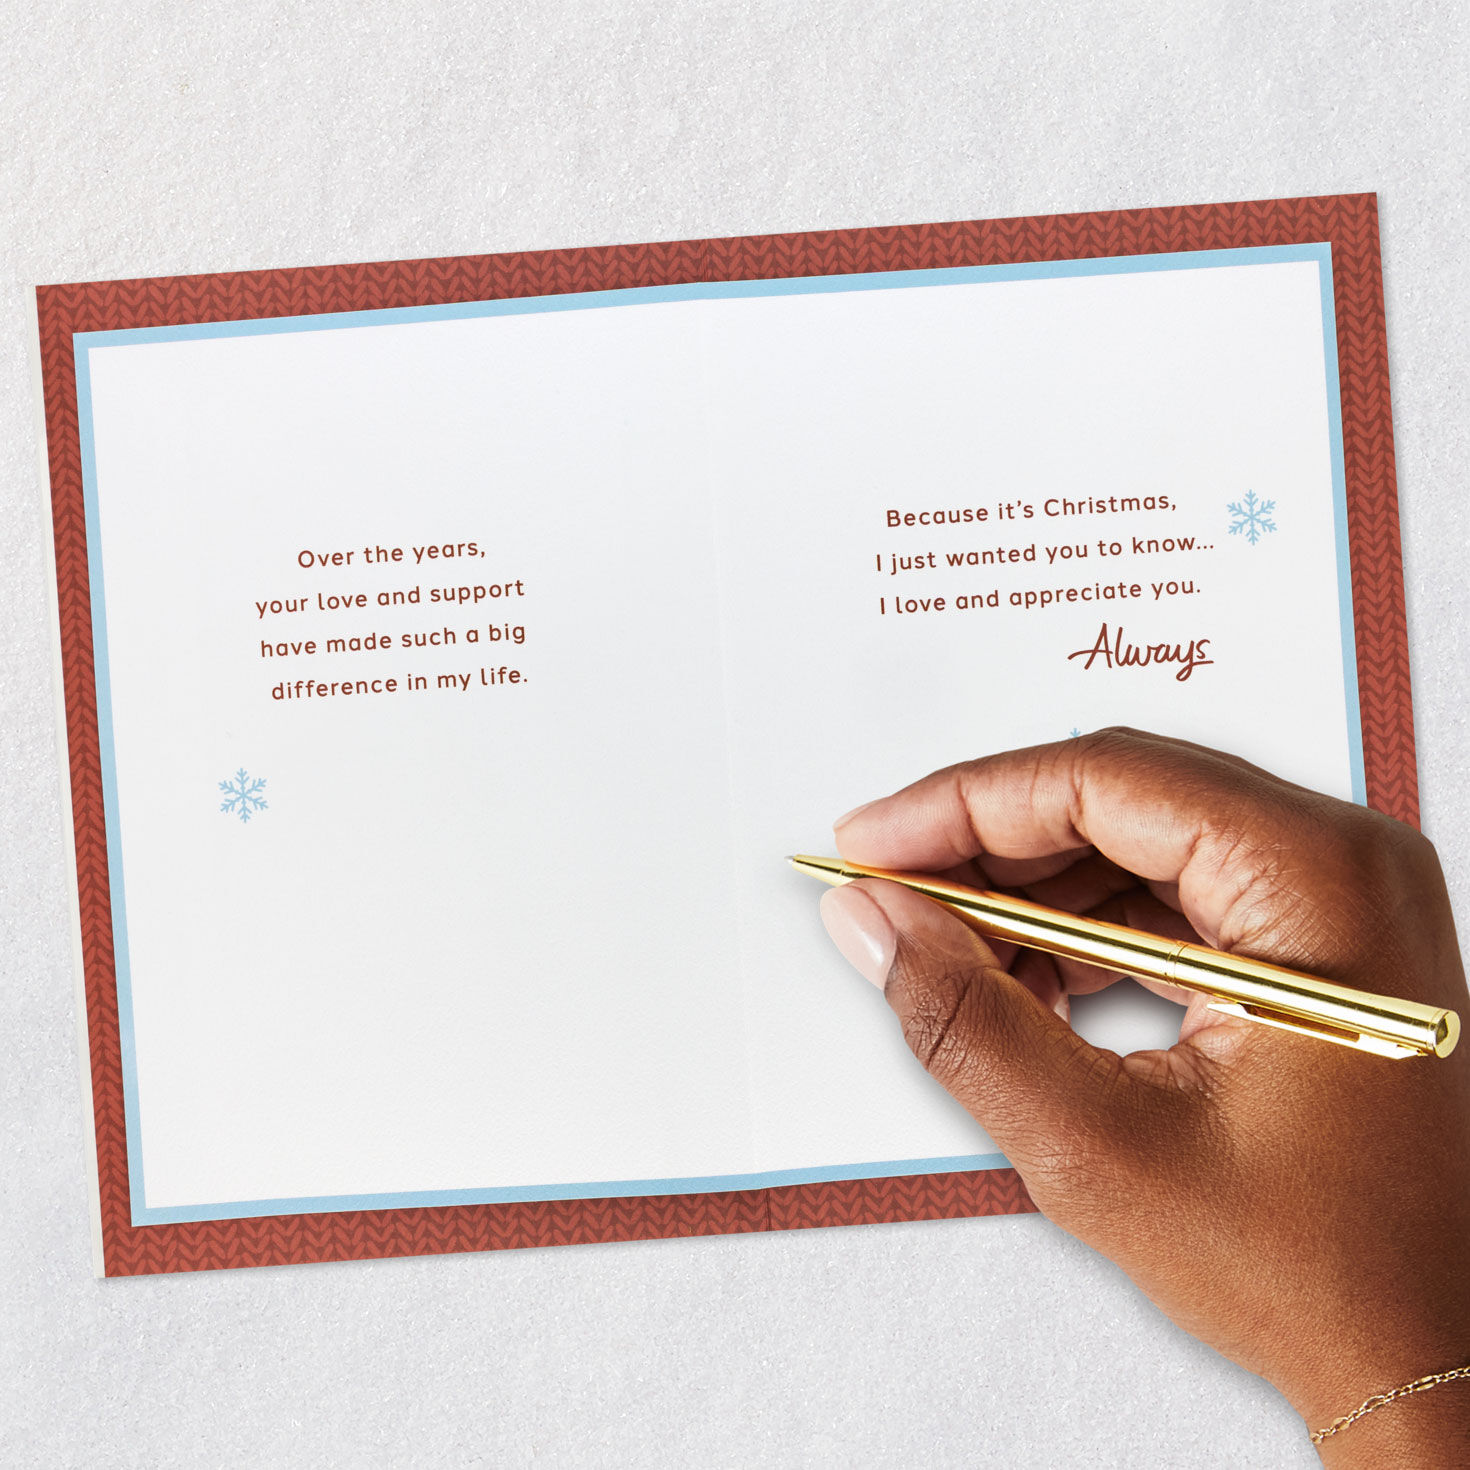 Over the years,
your love and support
have made such a big
difference in my life.
Because it's Christmas,
I just wanted you to know...
I love and appreciate you.
Always